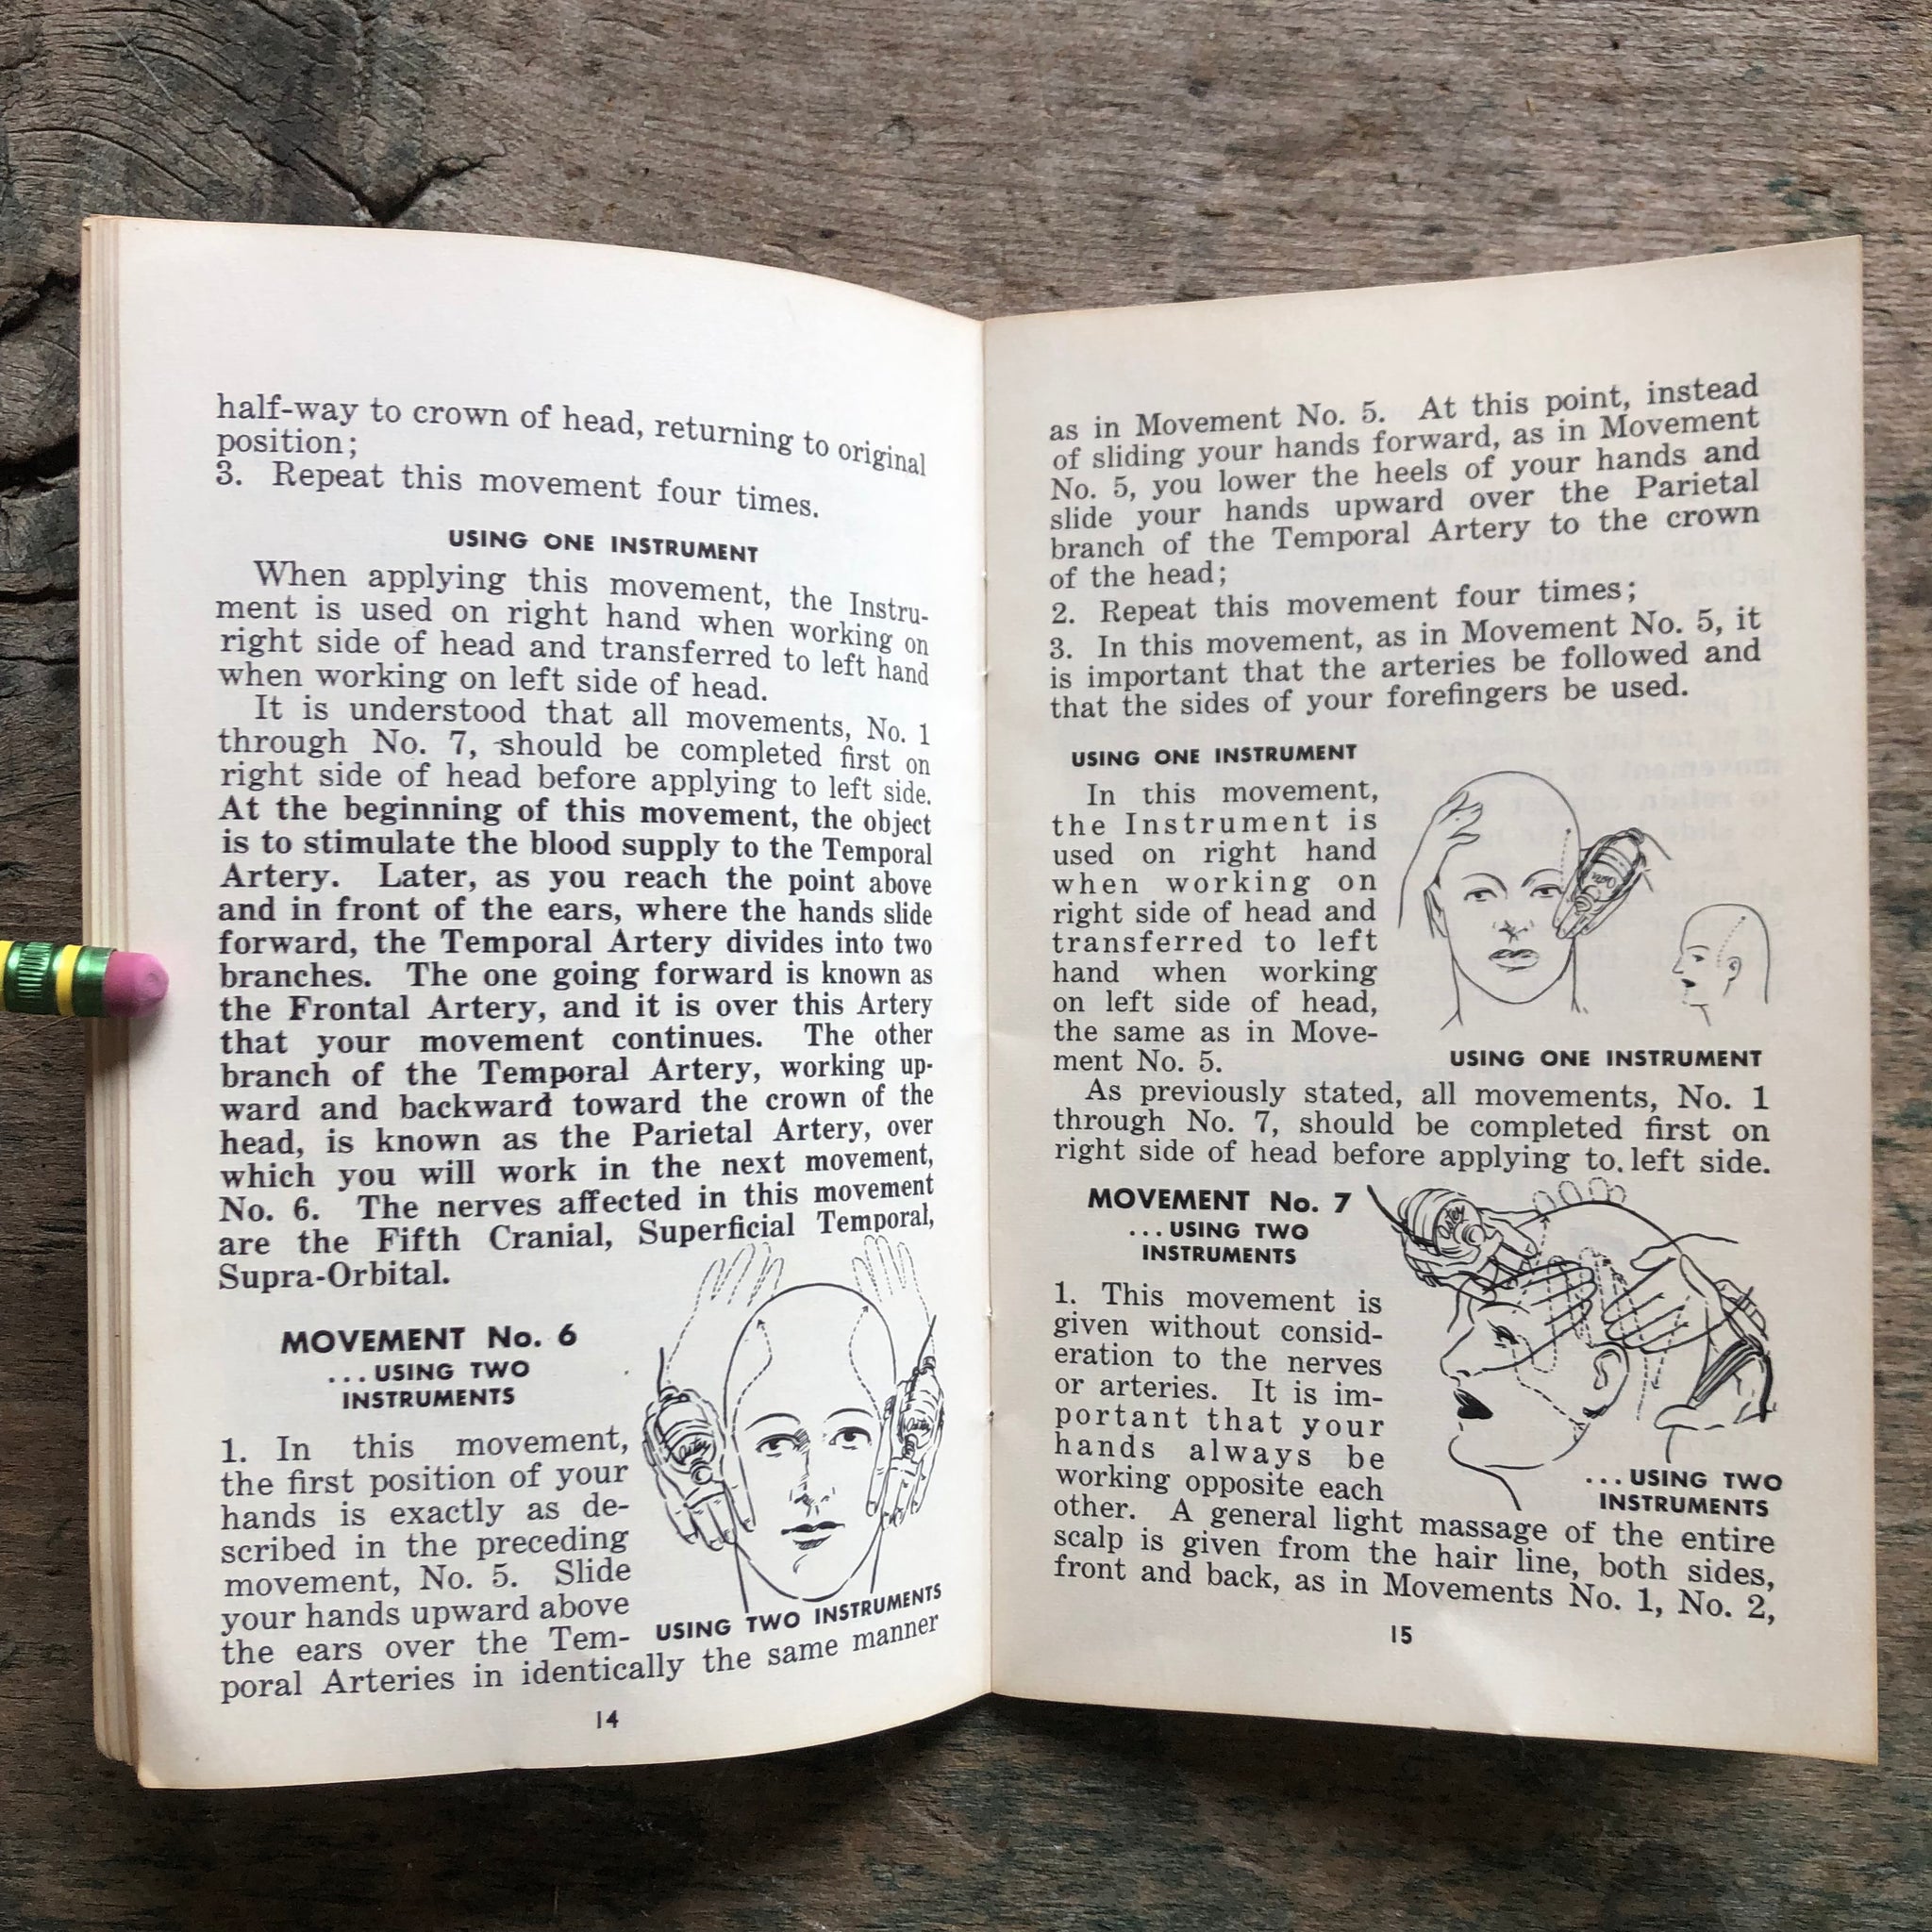 half-way to crown of head, returning to original
position;
3. Repeat this movement four times.
USING ONE INSTRUMENT
When applying this movement, the Instru-
ment is used on right hand when working on
right side of head and transferred to left hand
when working on left side of head.
It is understood that all movements, No. 1
through No. 7, should be completed first on
right side of head before applying to left side.
At the beginning of this movement, the object
is to stimulate the blood supply to the Temporal
Artery. Later, as you reach the point above
and in front of the ears, where the hands slide
forward, the Temporal Artery divides into two
branches. The one going forward is known as
the Frontal Artery, and it is over this Artery
that your movement continues. The other
branch of the Temporal Artery, working up-
ward and backward toward the crown of the
head, is known as the Parietal Artery, over
which you will work in the next movement,
No. 6. The nerves affected in this movement
are the Fifth Cranial, Superficial Temporal,
Supra-Orbital.
MOVEMENT No. 6
...USING TWO
INSTRUMENTS
1. In this movement,
the first position of your
hands is exactly as de-
scribed in the preceding
movement, No. 5. Slide
your hands upward above
the ears over the Tem-
USING TWO INSTRUMENTS
poral Arteries in identically the same manner
14
as in Movement No. 5. At this point, instead
of sliding your hands forward, as in Movement
No. 5, you lower the heels of your hands and
slide your hands upward over the Parietal
branch of the Temporal Artery to the crown
of the head;
2. Repeat this movement four times;
3. In this movement, as in Movement No. 5, it
is important that the arteries be followed and
that the sides of your forefingers be used.
USING ONE INSTRUMENT
In this movement,
the Instrument is
used on right hand
when working on
right side of head and
transferred to left
hand when working
on left side of head,
the same as in Move-
ment No. 5.
USING ONE INSTRUMENT
As previously stated, all movements, No. 1
through No. 7, should be completed first on
right side of head before applying to left side.
MOVEMENT No. 7
...USING TWO
INSTRUMENTS
Oster
1. This movement is
given without consid-
eration to the nerves
or arteries. It is im-
portant that your
hands always be
working opposite each
...USING TWO
INSTRUMENTS
other. A general light massage of the entire
scalp is given from the hair line, both sides,
front and back, as in Movements No. 1, No. 2,
15